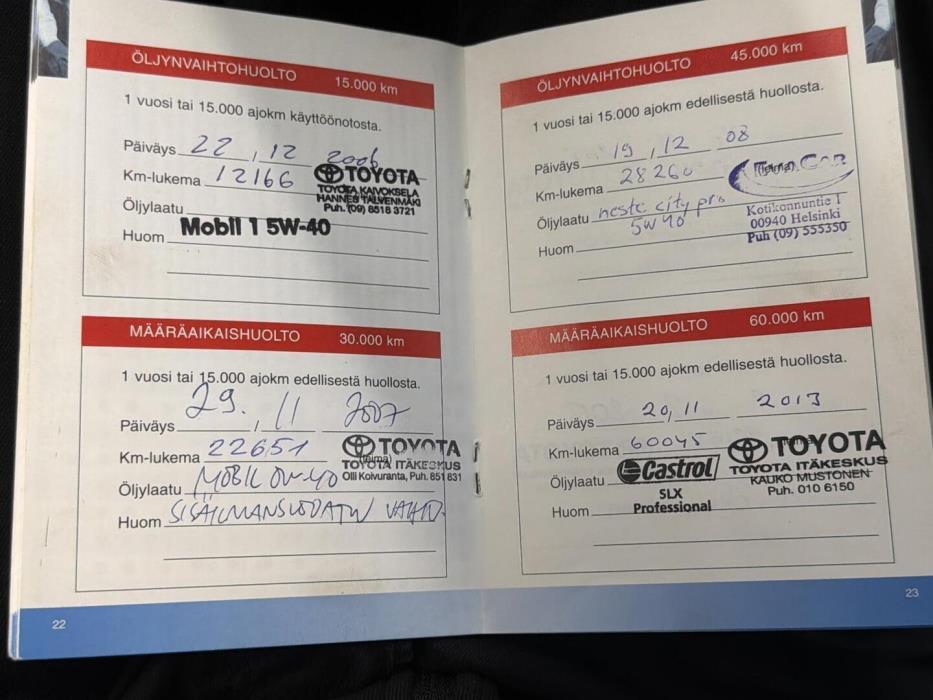 ÖLJYNVAIHTOHUOLTO 15.000 km
1 vuosi tai 15.000 ajokm käyttöönotosta.
Päiväys 22 , 12 2006
Km-lukema 12166
TOYOTA
TOYOTA KAIVOKSELA
HANNES TALVENMÄKI
Puh. (09) 8518 3721
Öljylaatu
Mobil 1 5W-40
Huom
MÄÄRÄAIKAISHUOLTO 30.000 km
1 vuosi tai 15.000 ajokm edellisestä huollosta.
Päiväys 29. , 11 2007
Km-lukema 22651
TOYOTA
(leima)
TOYOTA ITÄKESKUS
Olli Koivuranta, Puh. 851 831
Öljylaatu MOBIL 0W-40
Huom SISÄILMANSUODATIN VAIHD.
22
ÖLJYNVAIHTOHUOLTO 45.000 km
1 vuosi tai 15.000 ajokm edellisestä huollosta.
Päiväys 19 , 12 08
Km-lukema 28260
(leima)
Öljylaatu neste city pro
5W40
Kotikonnuntie 1
00940 Helsinki
Puh (09) 555350
Huom
MÄÄRÄAIKAISHUOLTO 60.000 km
1 vuosi tai 15.000 ajokm edellisestä huollosta.
Päiväys 20, 11 2013
Km-lukema 60045
(leima)
TOYOTA
TOYOTA ITÄKESKUS
KAUKO MUSTONEN
Puh. 010 6150
Öljylaatu Castrol
SLX
Professional
Huom
23